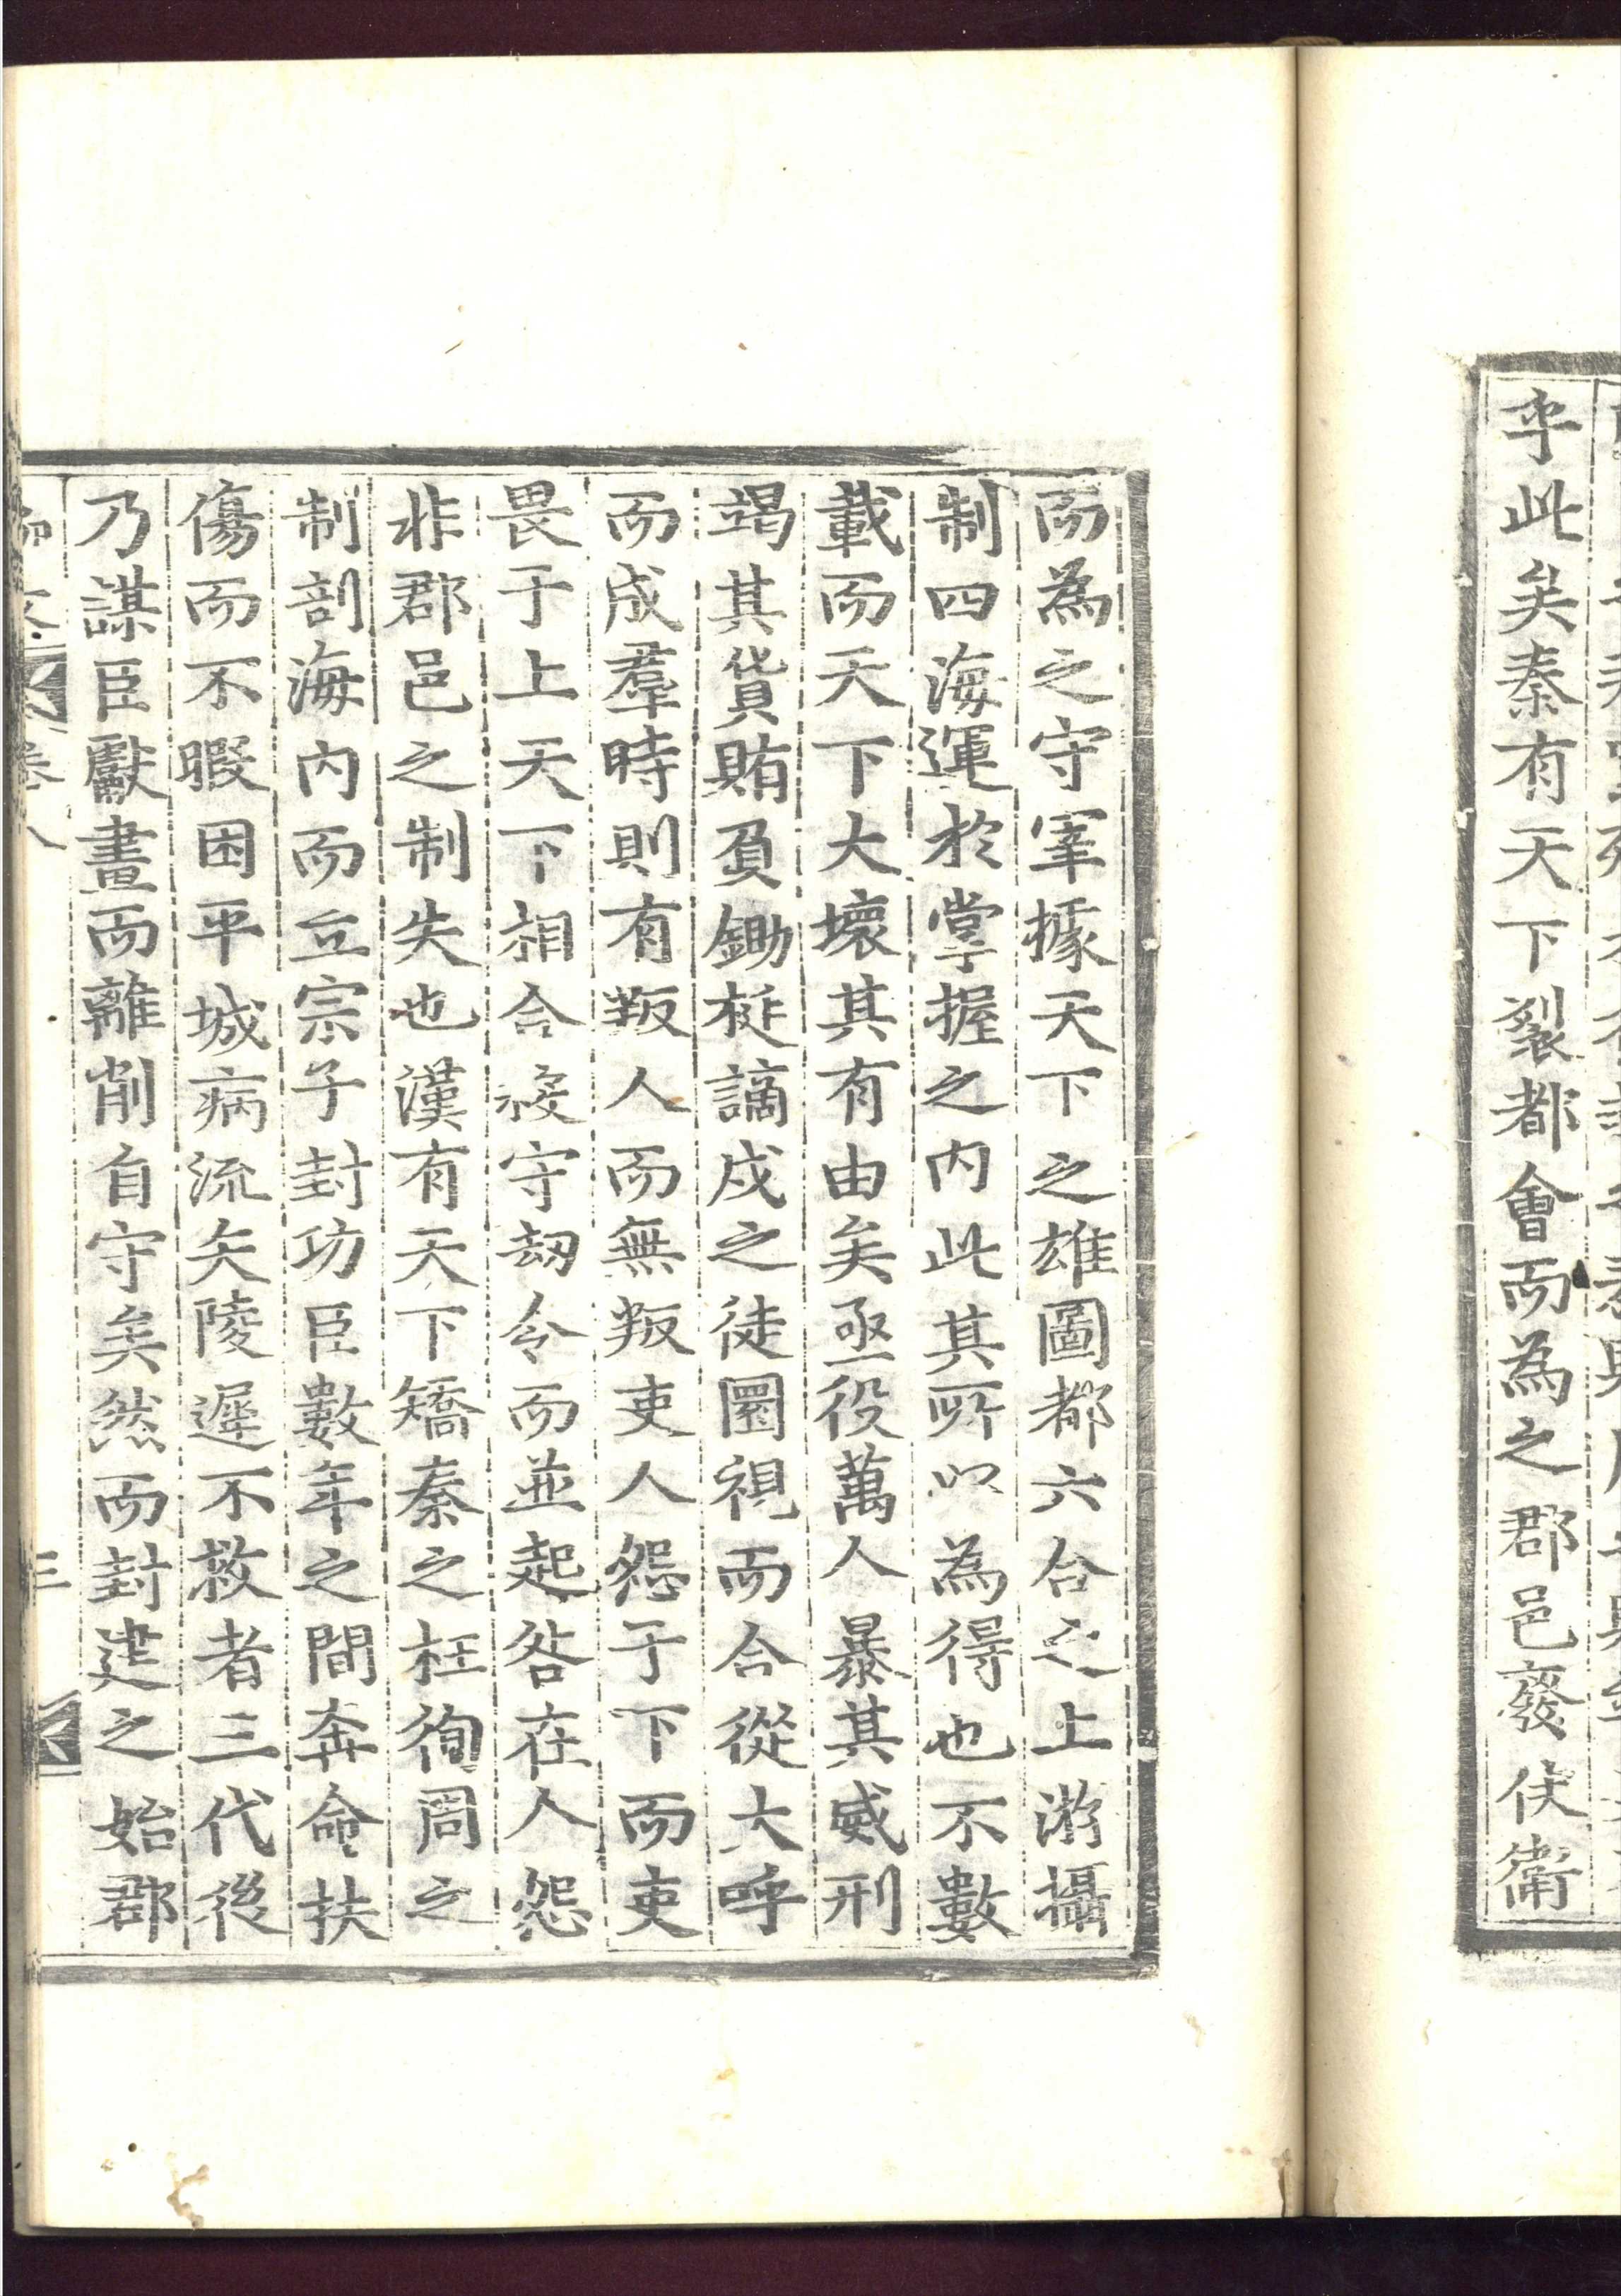 乎此矣秦有天下裂都會而為之郡邑廢侯衛
而為之守宰據天下之雄圖都六合之上游攝
制四海運於掌握之內此其所以為得也不數
載而天下大壞其有由矣亟役萬人暴其威刑
竭其貨賄負鋤梃謫戍之徒圜視而合從大呼
而成羣時則有叛人而無叛吏人怨于下而吏
畏于上天下相合殺守劫令而並起咎在人怨
非郡邑之制失也漢有天下矯秦之枉徇周之
制剖海內而立宗子封功臣數年之間奔命扶
傷而不暇困平城病流矢陵遲不救者三代後
乃謀臣獻畫而離削自守矣然而封建之始郡
卷八
三